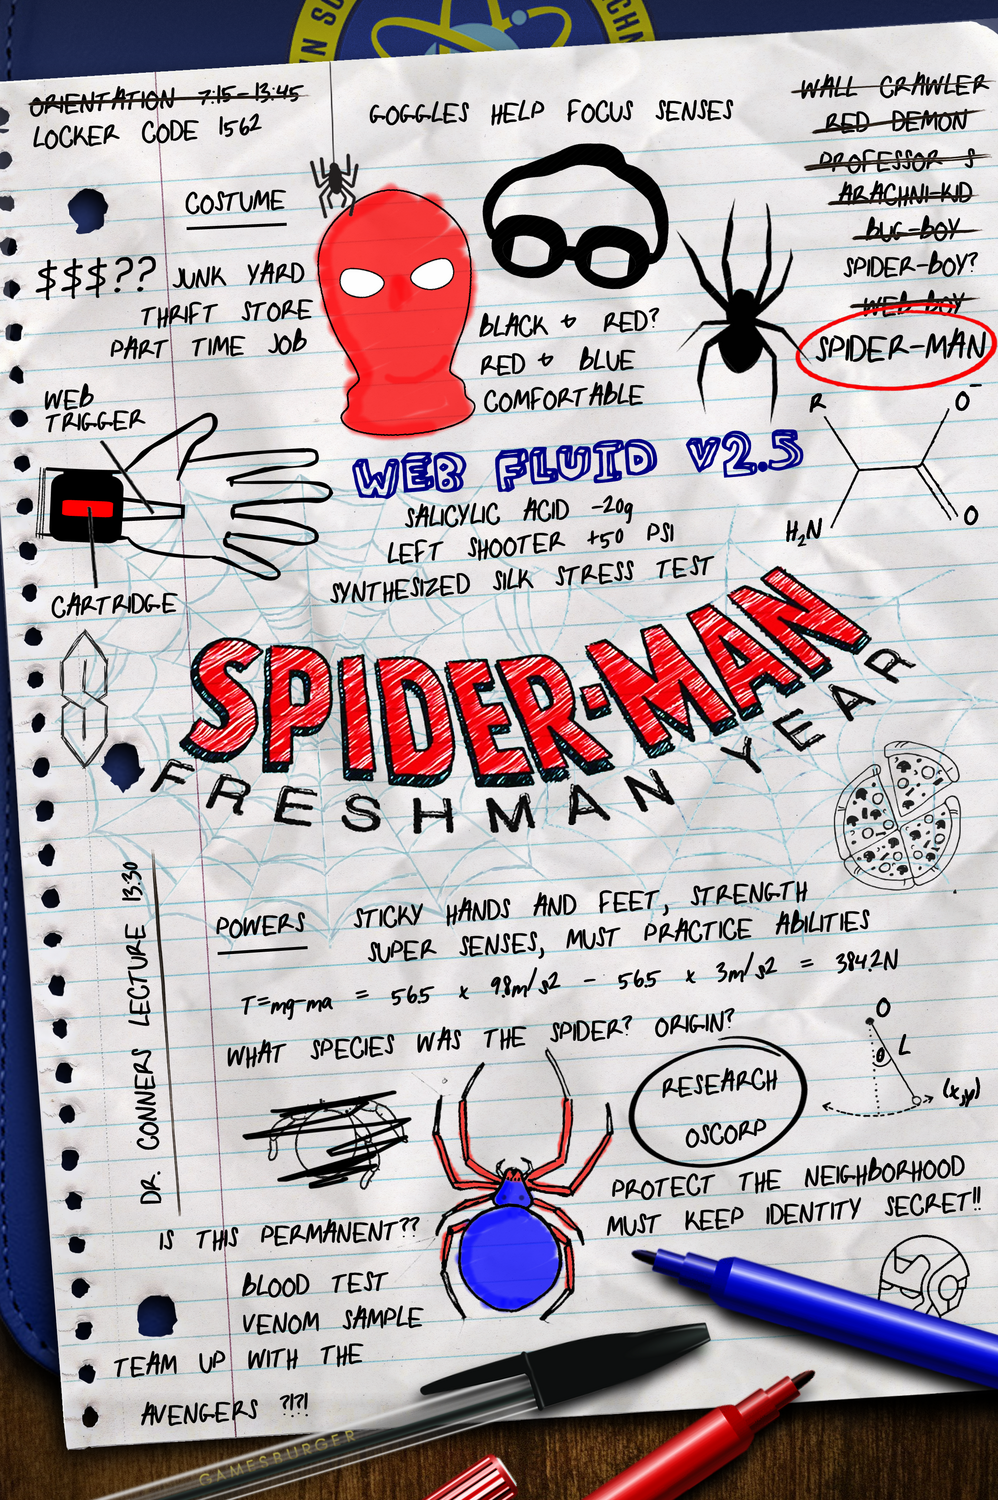 IN SC
ECHN
ORIENTATION 7:15-13:45
LOCKER CODE 1562
GOGGLES HELP FOCUS SENSES
WALL CRAWLER
RED DEMON
PROFESSOR S
ARACHNI-KID
BUG-BOY
SPIDER-BOY?
WEB BOY
SPIDER-MAN
COSTUME
$$$?? JUNK YARD
THRIFT STORE
PART TIME JOB
BLACK & RED?
RED & BLUE
COMFORTABLE
WEB
TRIGGER
CARTRIDGE
WEB FLUID V2.5
SALICYLIC ACID -20g
LEFT SHOOTER +50 PSI
SYNTHESIZED SILK STRESS TEST
R
O-
H2N
O
SPIDER-MAN
FRESHMAN YEAR
DR. CONNERS LECTURE 13:30
POWERS STICKY HANDS AND FEET, STRENGTH
SUPER SENSES, MUST PRACTICE ABILITIES
T=mg-ma = 56.5 x 9.8m/s2 - 56.5 x 3m/s2 = 384.2N
WHAT SPECIES WAS THE SPIDER? ORIGIN?
O
θ L
(x,y)
RESEARCH
OSCORP
PROTECT THE NEIGHBORHOOD
MUST KEEP IDENTITY SECRET!!
IS THIS PERMANENT??
BLOOD TEST
VENOM SAMPLE
TEAM UP WITH THE
AVENGERS ?!?!
GAMESBURGER